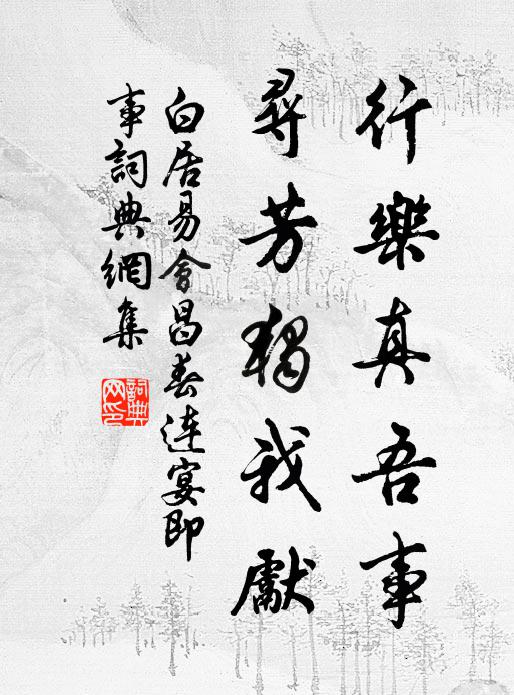 行樂真吾事
尋芳獨我獻
白居易會昌春連宴即
事詞典網集
詞典
网印